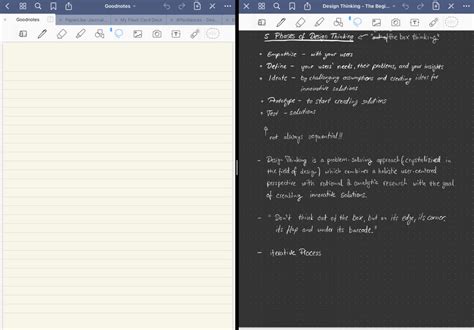 Goodnotes
Design Thinking - The Begi...
Goodnotes
5 Phases of Design Thinking ← "out of the box thinking"
• Empathise - with your users
• Define - your users' needs, their problems, and your insights
• Ideate - by challenging assumptions and creating ideas for
innovative solutions
• Prototype - to start creating solutions
• Test - solutions
not always sequential!!
- Design Thinking is a problem-solving approach (crystallized in
the field of design) which combines a holistic user-centered
perspective with rational & analytic research with the goal
of creating innovative solutions.
- "Don't think out of the box, but on its edge, its corner,
its flap and under its barcode."
- iterative Process